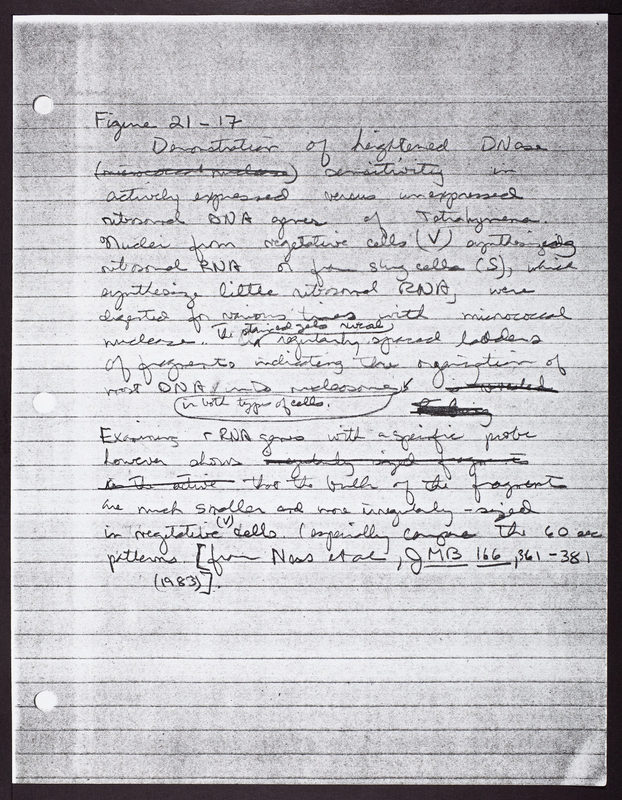 Figure 21-17
Demonstration of heightened DNase
(micrococcal nuclease) sensitivity in
actively expressed versus unexpressed
ribosomal DNA genes of Tetrahymena.
Nuclei from vegetative cells (V) synthesizing
ribosomal RNA or from cells (S), which
synthesize little ribosomal RNA, were
digested for various times with micrococcal
nuclease. The stained gels reveal regularly spaced ladders
of fragments indicating the organization of
most DNA into nucleosomes
in both types of cells.
Examining rRNA genes with a specific probe
however shows regularly sized fragments
in the active that the bulk of the fragments
are much smaller and more irregularly-sized
in vegetative (V) cells. (especially compare the 60 sec
patterns. [from Ness et al, JMB 166, 361-381
(1983)].